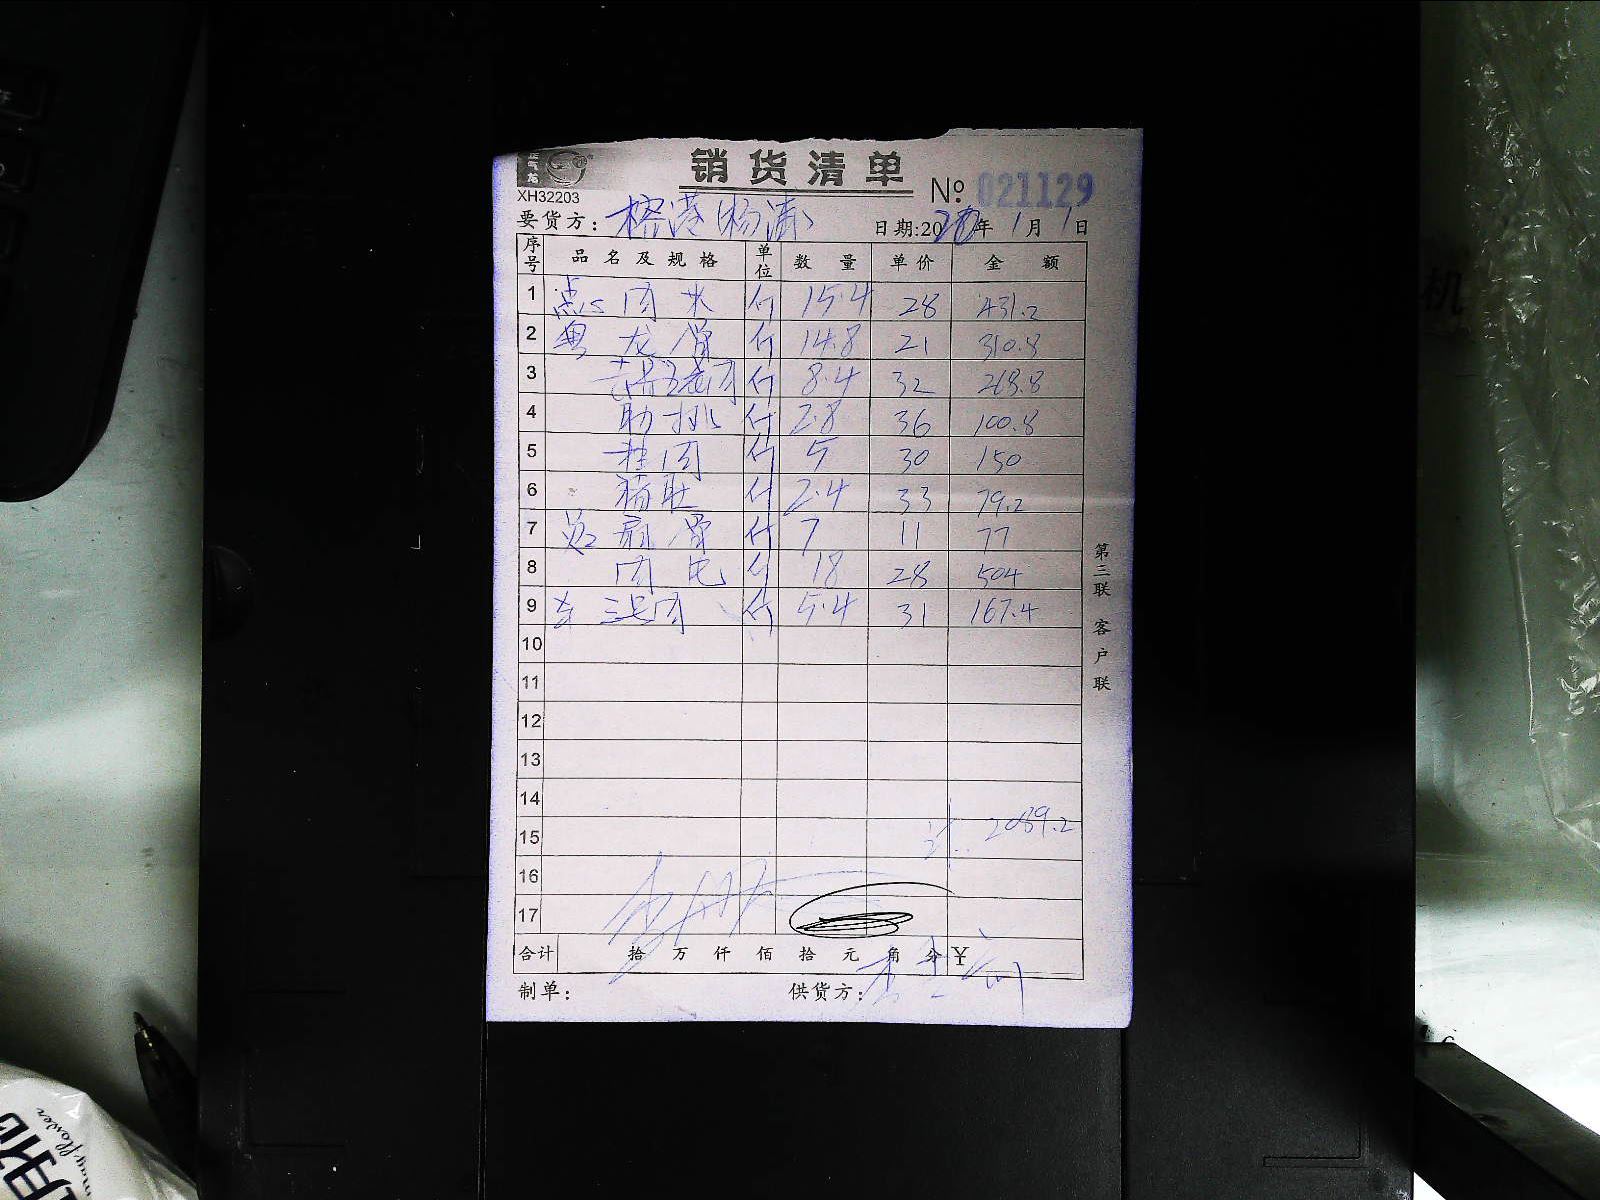 销货清单
№ 021129
XH32203
要货方： 日期:2020年 1月 1日
序号 品名及规格 单位 数量 单价 金额
1 点心 肉米 斤 15.4 28 431.2
2 粤 龙骨 斤 14.8 21 310.8
3 斤 8.4 32 268.8
4 肋排 斤 2.8 36 100.8
5 肉 斤 5 30 150
6 猪肚 斤 2.4 33 79.2
7 扇骨 斤 7 11 77
8 肉 斤 18 28 504
9 肉 斤 5.4 31 167.4
10
11
12
13
14
15 计. 2089.2
16
17
合计 拾 万 仟 佰 拾 元 角 分 ¥
制单： 供货方：
第三联 客户联
机